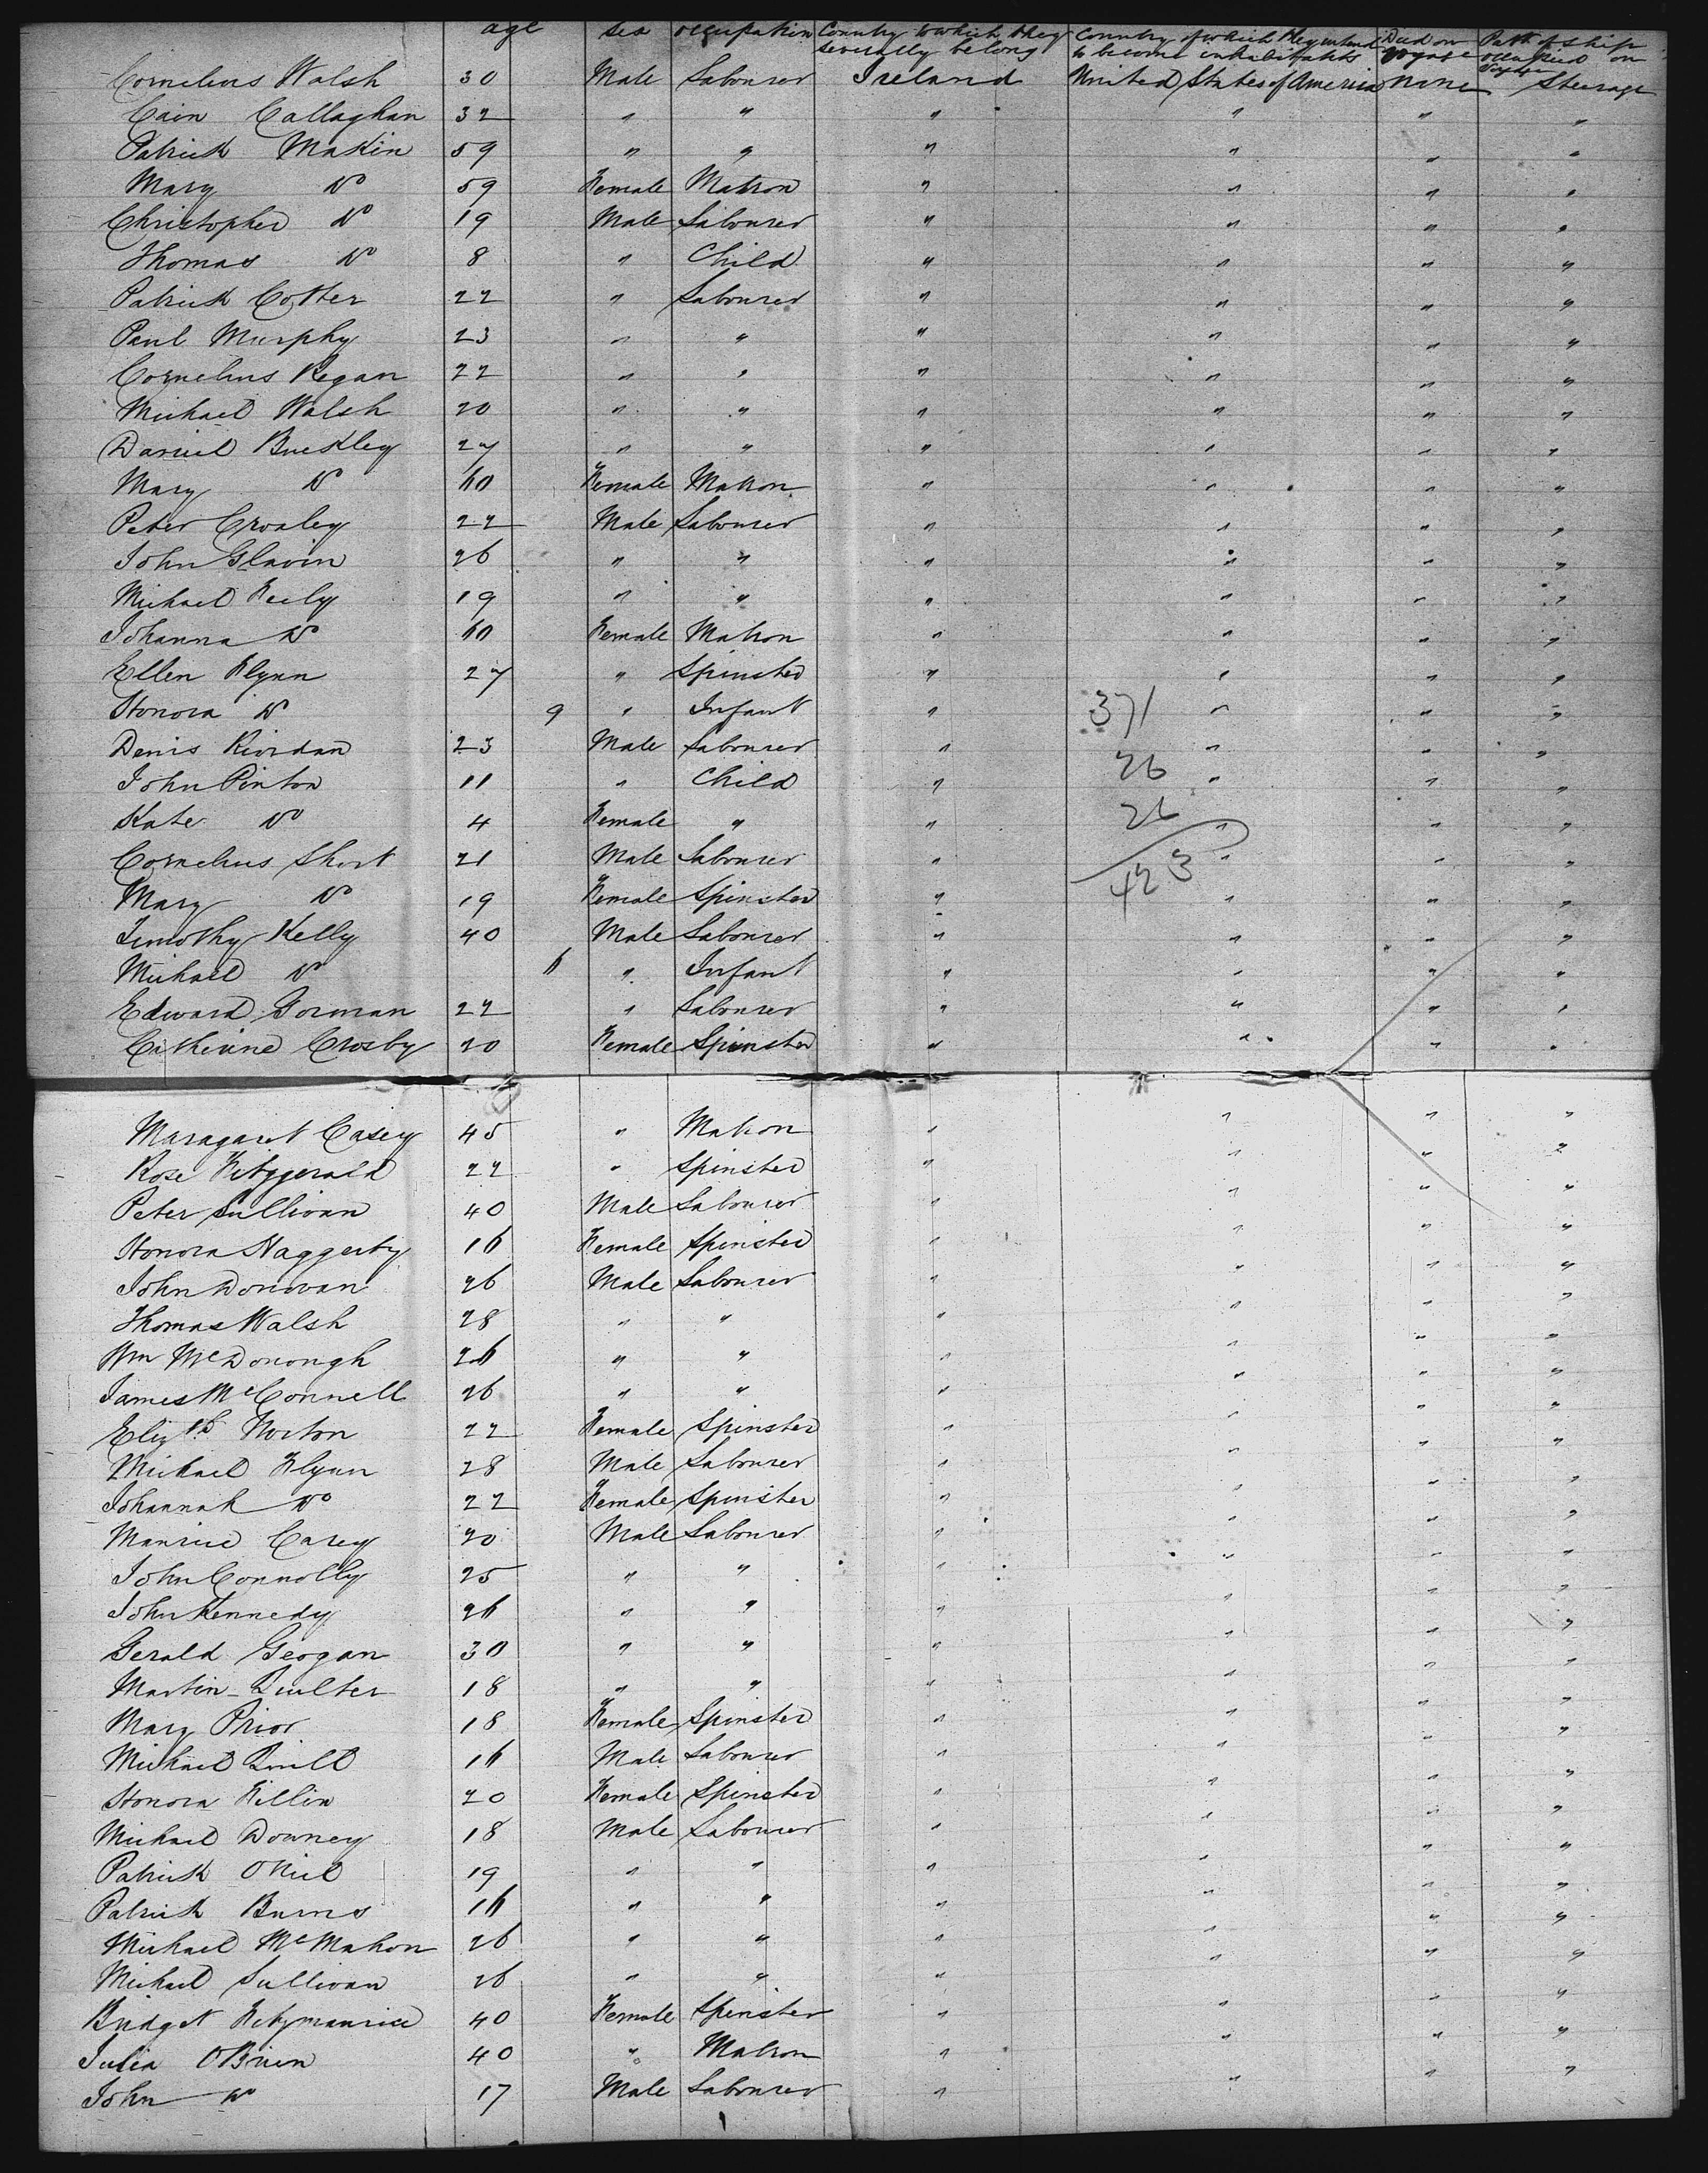 age sex occupation Country to which they severally belong Country of which they intend to become inhabitants Died on Voyage Part of Ship occupied on Voyage
Cornelius Walsh 30 Male Labourer Ireland United States of America None Steerage
Cain Callaghan 32 " " " " " "
Patrick Makin 59 " " " " " "
Mary Do 59 Female Matron " " " "
Christopher Do 19 Male Labourer " " " "
Thomas Do 8 " Child " " " "
Patrick Cotter 22 " Labourer " " " "
Paul Murphy 23 " " " " " "
Cornelius Regan 22 " " " " " "
Michael Walsh 20 " " " " " "
Daniel Buckley 27 " " " " " "
Mary Do 60 Female Matron " " " "
Peter Crowley 22 Male Labourer " " " "
John Glavin 26 " " " " " "
Michael Keily 19 " " " " " "
Johanna Do 60 Female Matron " " " "
Ellen Flynn 27 " Spinster " " " "
Honora Do 9 " Infant " 371 " " "
Denis Riordan 23 Male Labourer " " " "
John Pinton 11 " Child " 26 " " "
Kate Do 4 Female " " 26 " " "
Cornelius Short 21 Male Labourer " 423 " " "
Mary Do 19 Female Spinster " " " "
Timothy Kelly 40 Male Labourer " " " "
Michael Do 6 " Infant " " " "
Edward Gorman 22 " Labourer " " " "
Catherine Crosby 20 Female Spinster " " " "
Maragaret Casey 45 " Matron " " " "
Rose Fitzgerald 22 " Spinster " " " "
Peter Sullivan 40 Male Labourer " " " "
Honora Haggerty 16 Female Spinster " " " "
John Donovan 26 Male Labourer " " " "
Thomas Walsh 28 " " " " " "
Wm McDonough 26 " " " " " "
James McConnell 26 " " " " " "
Elizth Norton 22 Female Spinster " " " "
Michael Flynn 28 Male Labourer " " " "
Johannah Do 22 Female Spinster " " " "
Maurice Carey 20 Male Labourer " " " "
John Connolly 25 " " " " " "
John Kennedy 26 " " " " " "
Gerald Geogan 30 " " " " " "
Martin Quilter 18 " " " " " "
Mary Prior 18 Female Spinster " " " "
Michael Quill 16 Male Labourer " " " "
Honora Killin 20 Female Spinster " " " "
Michael Downey 18 Male Labourer " " " "
Patrick ONiel 19 " " " " " "
Patrick Burns 16 " " " " " "
Michael McMahon 26 " " " " " "
Michael Sullivan 26 " " " " " "
Bridget Fitzmaurice 40 Female Spinster " " " "
Julia OBrien 40 " Matron " " " "
John Do 17 Male Labourer " " " "